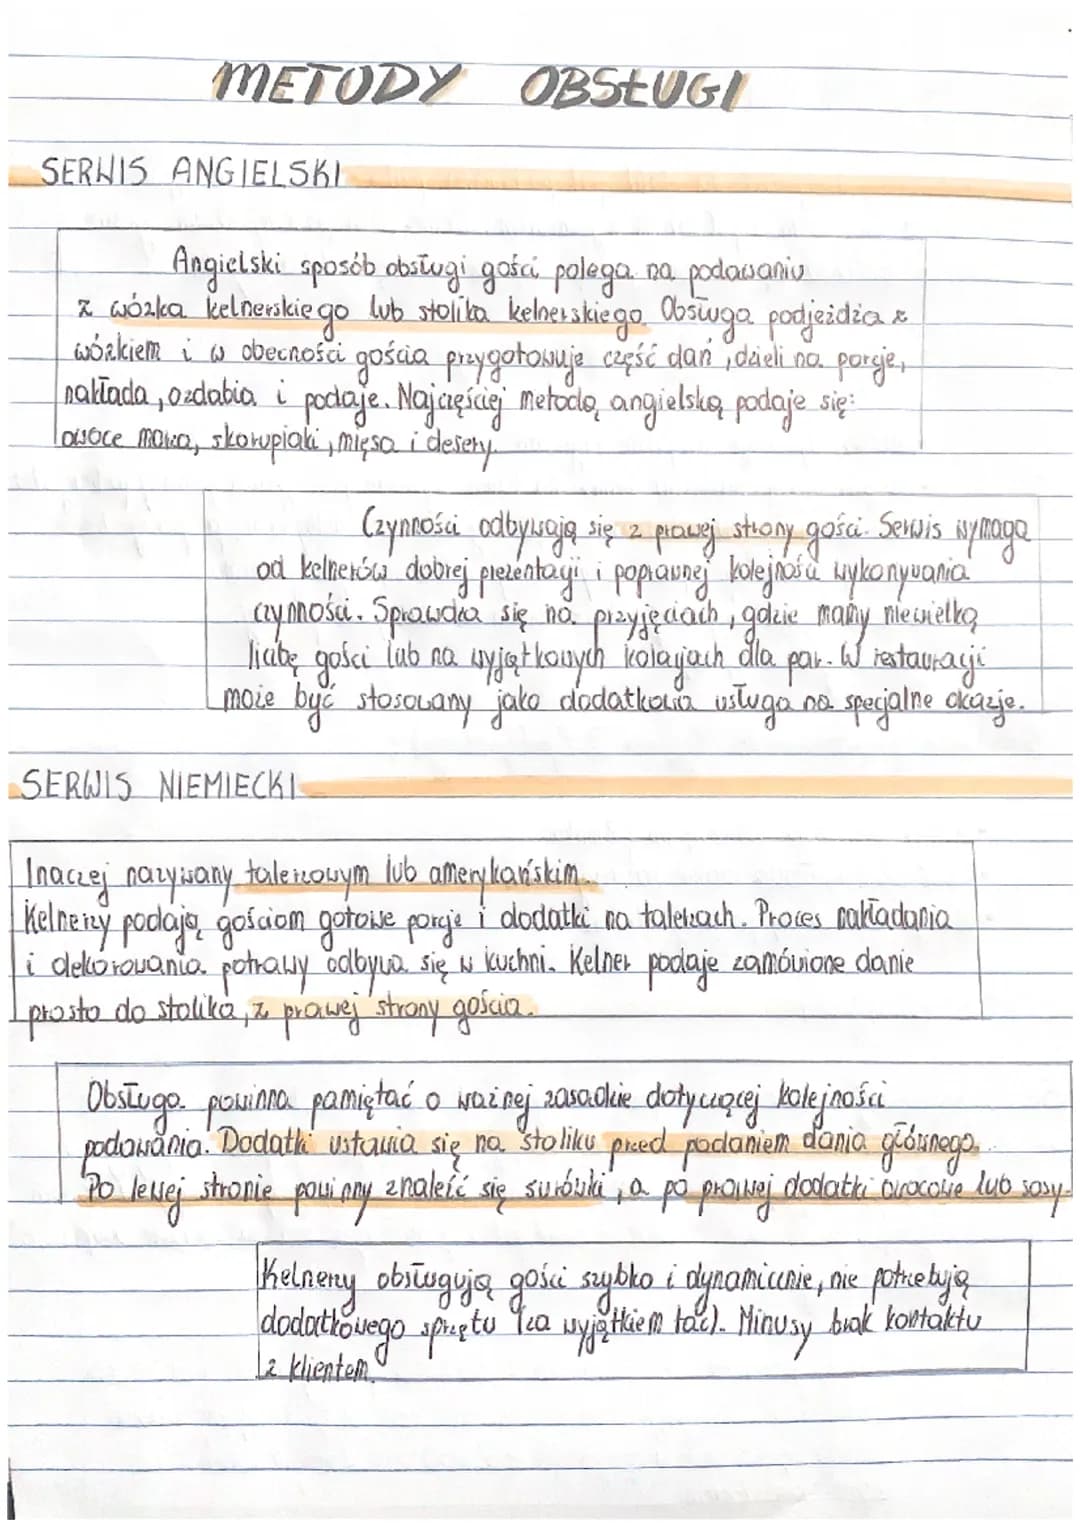 METODY OBSŁUGI
SERWIS ANGIELSKI
Angielski sposób obsługi gości polega na podawaniu
z wózka kelnerskiego lub stolika kelnerskiego. Obsługa podjeżdża z
wózkiem i w obecności gościa przygotowuje część dań, dzieli na porcje,
nakłada, ozdabia i podaje. Najczęściej metodą angielską podaje się:
owoce morza, skorupiaki, mięsa i desery.
Czynności odbywają się z prawej strony gości. Serwis wymaga
od kelnerów dobrej prezentacji i poprawnej kolejności wykonywania
czynności. Sprawdza się na przyjęciach, gdzie mamy niewielką
liczbę gości lub na wyjątkowych kolacjach dla par. W restauracji
może być stosowany jako dodatkowa usługa na specjalne okazje.
SERWIS NIEMIECKI
Inaczej nazywany talerzowym lub amerykańskim.
Kelnerzy podają gościom gotowe porcje i dodatki na talerzach. Proces nakładania
i dekorowania potrawy odbywa się w kuchni. Kelner podaje zamówione danie
prosto do stolika, z prawej strony gościa.
Obsługa powinna pamiętać o ważnej zasadzie dotyczącej kolejności
podawania. Dodatki ustawia się na stoliku przed podaniem dania głównego.
Po lewej stronie powinny znaleźć się surówki, a po prawej dodatki owocowe lub sosy.
Kelnerzy obsługują gości szybko i dynamicznie, nie potrzebują
dodatkowego sprzętu (za wyjątkiem tac). Minusy brak kontaktu
z klientem.